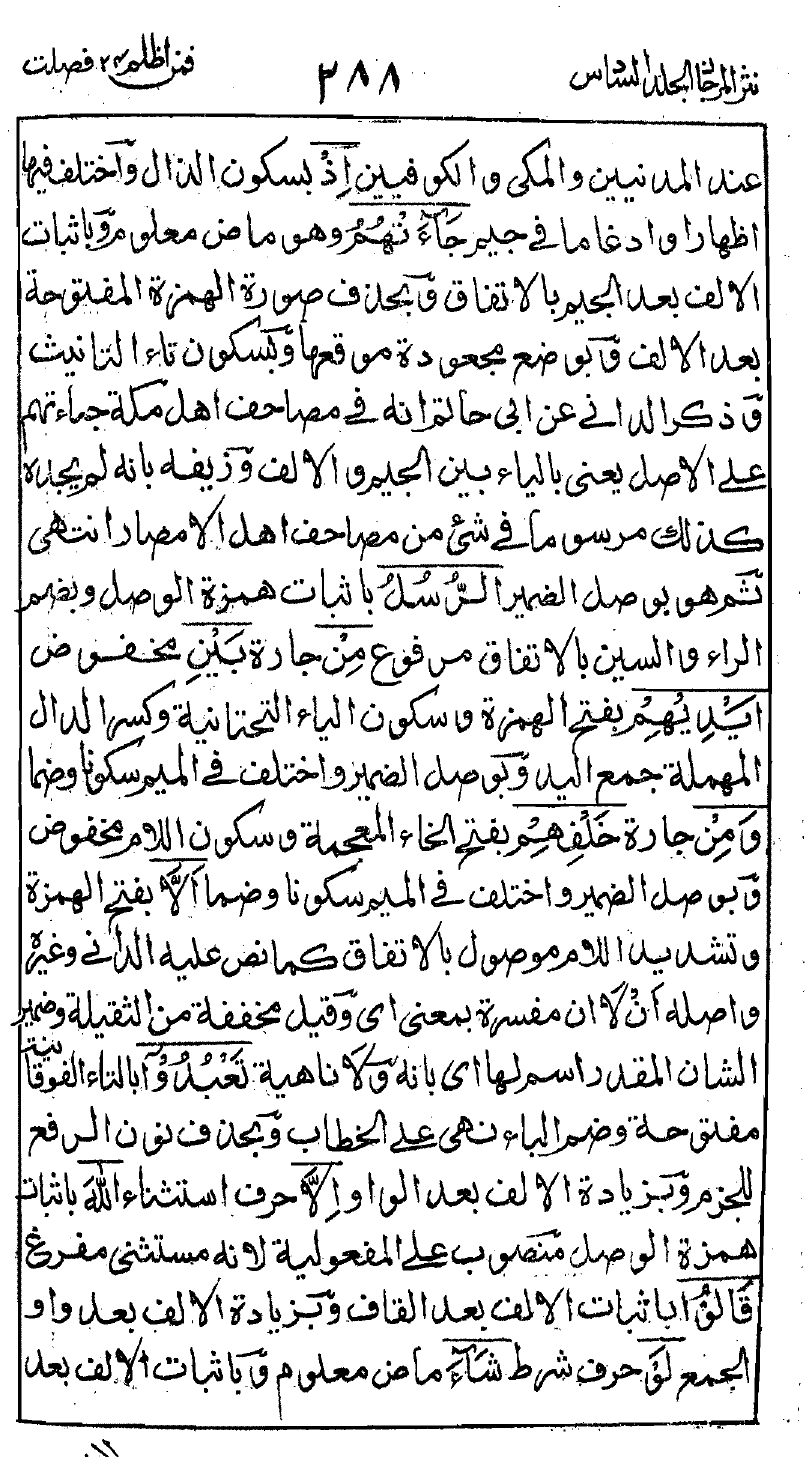 نثر المرجان الجلد السادس ٣٨٨ فمن اظلم ٢٤ فصلت
عند المدنيين والمكى والكوفيين اِذْ بسكون الذال وَاختلف فيها
اظهارا وادغاما في جيم جَآءَتْهُمُ وهو ماض معلوم وَباثبات
الالف بعد الجيم بالاتفاق وَبحذف صورة الهمزة المفتوحة
بعد الالف وَبوضع مجعودة موقعها وَبسكون تاء التانيث
وَذكر الداني عن ابى حاتم انه في مصاحف اهل مكة جياءتهم
على الاصل يعنى بالياء بين الجيم والالف وَزيفه بانه لم يجده
كذلك مرسوما في شئ من مصاحف اهل الامصار انتهى
ثم هو بوصل الضمير الرُّسُلُ باثبات همزة الوصل وبضم
الراء والسين بالاتفاق مرفوع مِنْ جارة بَيْنِ مخفوض
اَيْدِيْهِمْ بفتح الهمزة وسكون الياء التحتانية وكسر الدال
المهملة جمع اليد وَبوصل الضمير واختلف في الميم سكونا وضما
وَمِنْ جارة خَلْفِهِمْ بفتح الخاء المعجمة وسكون اللام مخفوض
وَبوصل الضمير واختلف في الميم سكونا وضما اَلَّا بفتح الهمزة
وتشديد اللام موصول بالاتفاق كما نص عليه الداني وغيره
واصله اَنْ لَا ان مفسرة بمعنى اى وَقيل مخففة من الثقيلة وضمير
الشان المقدر اسم لها اى بانه وَلا ناهية تَعْبُدُوْٓا بالتاء الفوقانية
مفتوحة وضم الباء نهى على الخطاب وَبحذف نون الرفع
للجزم وَبزيادة الالف بعد الواو اِلَّا حرف استثناء اللهَ باثبات
همزة الوصل منصوب على المفعولية لانه مستثنى مفرغ
قَالُوْا باثبات الالف بعد القاف وَبزيادة الالف بعد واو
الجمع لَوْ حرف شرط شَآءَ ماض معلوم وَباثبات الالف بعد